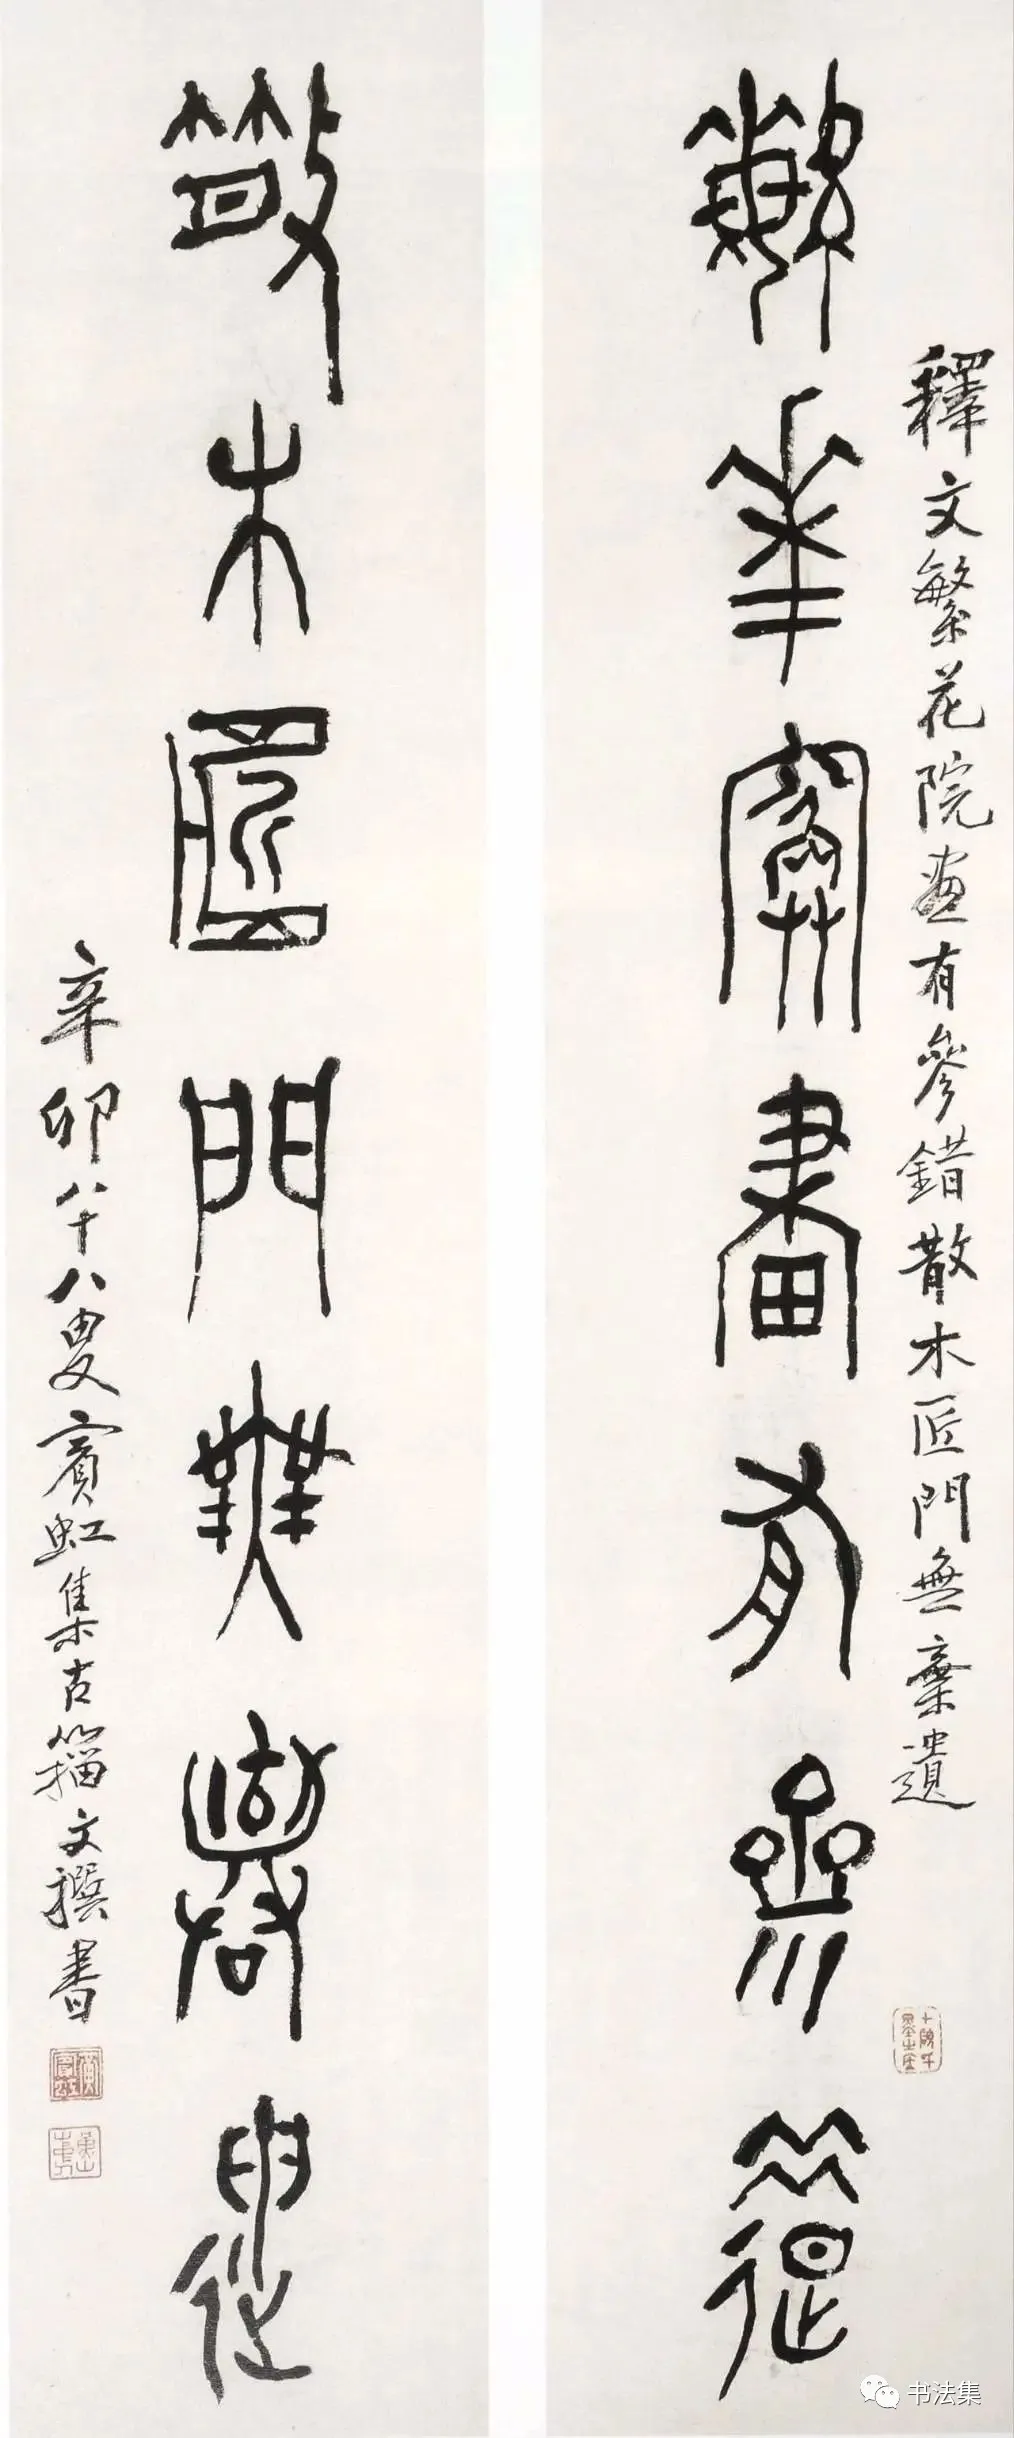 繁華院畫有參錯
釋文繁花院畫有參錯散木匠門無棄遺
散木匠門無棄遺
辛卯八十八叟賓虹集古籀文撰書
书法集